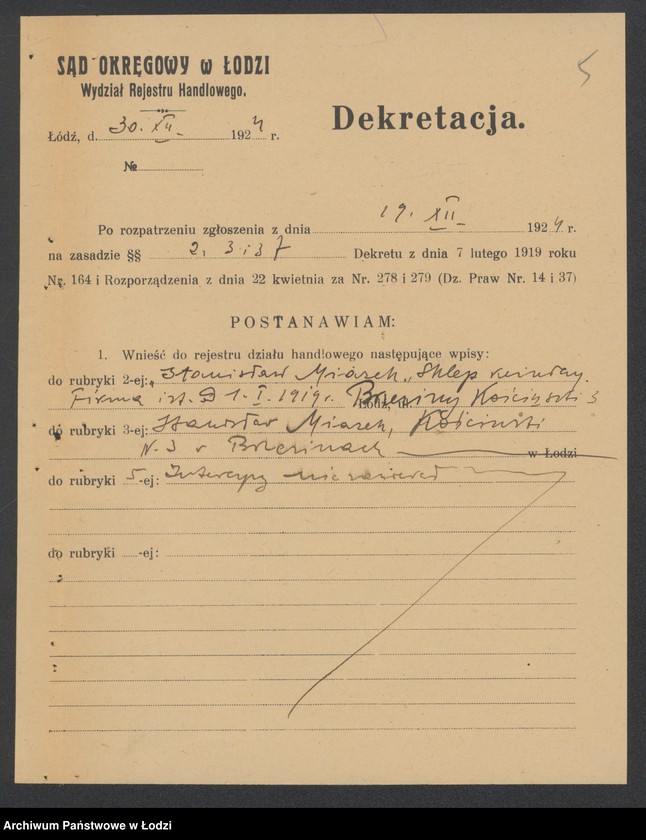 SĄD OKRĘGOWY w ŁODZI
Wydział Rejestru Handlowego.
5
Łódź, d. 30. XII. 1924 r.
Dekretacja.
№
Po rozpatrzeniu zgłoszenia z dnia 19. XII 1924 r.
na zasadzie §§ 2, 3 i 37 Dekretu z dnia 7 lutego 1919 roku
Nr. 164 i Rozporządzenia z dnia 22 kwietnia za Nr. 278 i 279 (Dz. Praw Nr. 14 i 37)
POSTANAWIAM:
1. Wnieść do rejestru działu handlowego następujące wpisy:
do rubryki 2-ej: Stanisław Miazek, Sklep
Firma ist. 1. I. 1919 r. Brzeziny Kościuszki 3
do rubryki 3-ej: Stanisław Miazek, Kościuszki
N. 3 w Brzezinach w Łodzi
do rubryki 5-ej: Intercyzy nie zawierał
do rubryki -ej:
Archiwum Państwowe w Łodzi